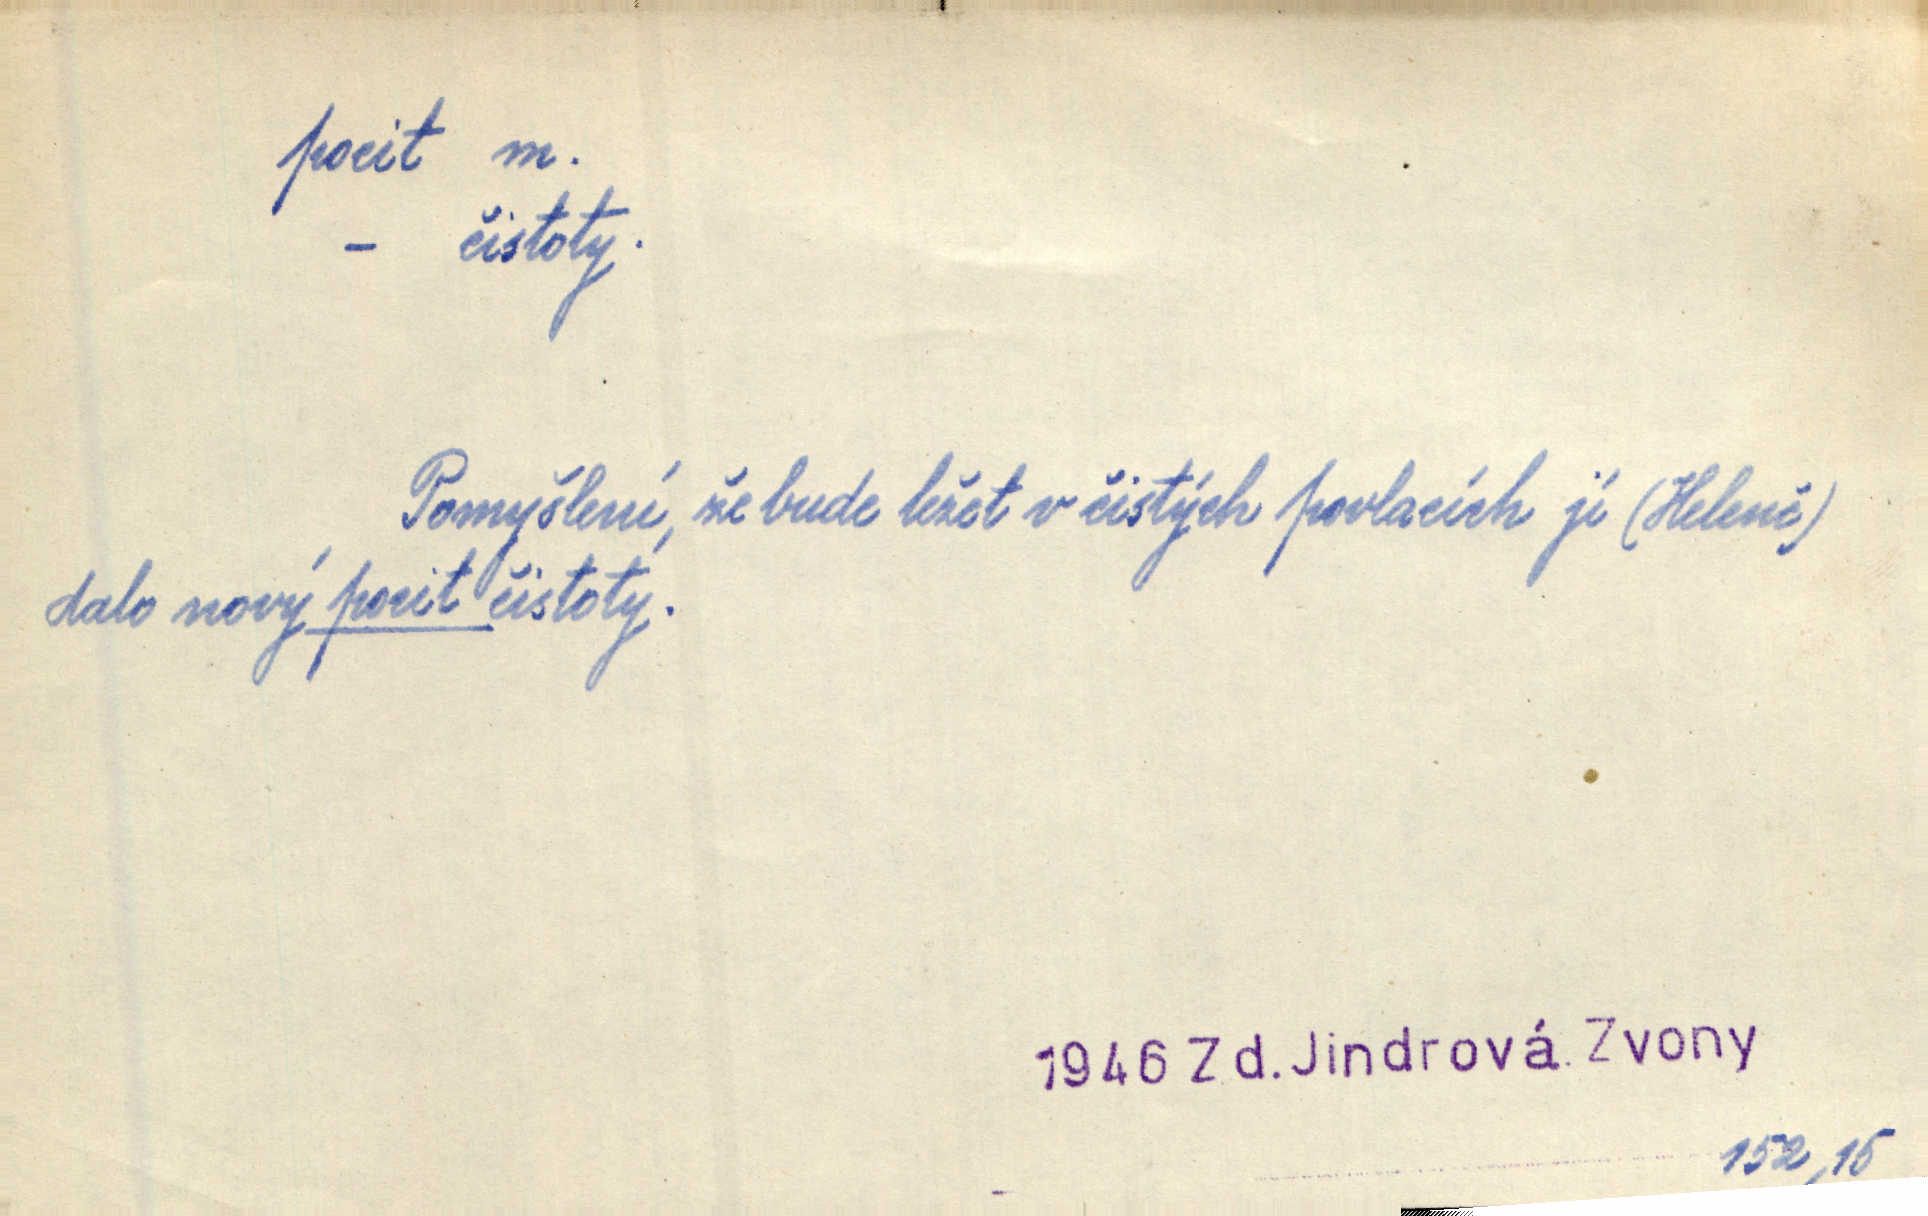 pocit m.
– čistoty.
Pomyšlení, že bude ležet v čistých povlacích jí (Heleně)
dalo nový pocit čistoty.
1946 Zd. Jindrová. Zvony
152,15